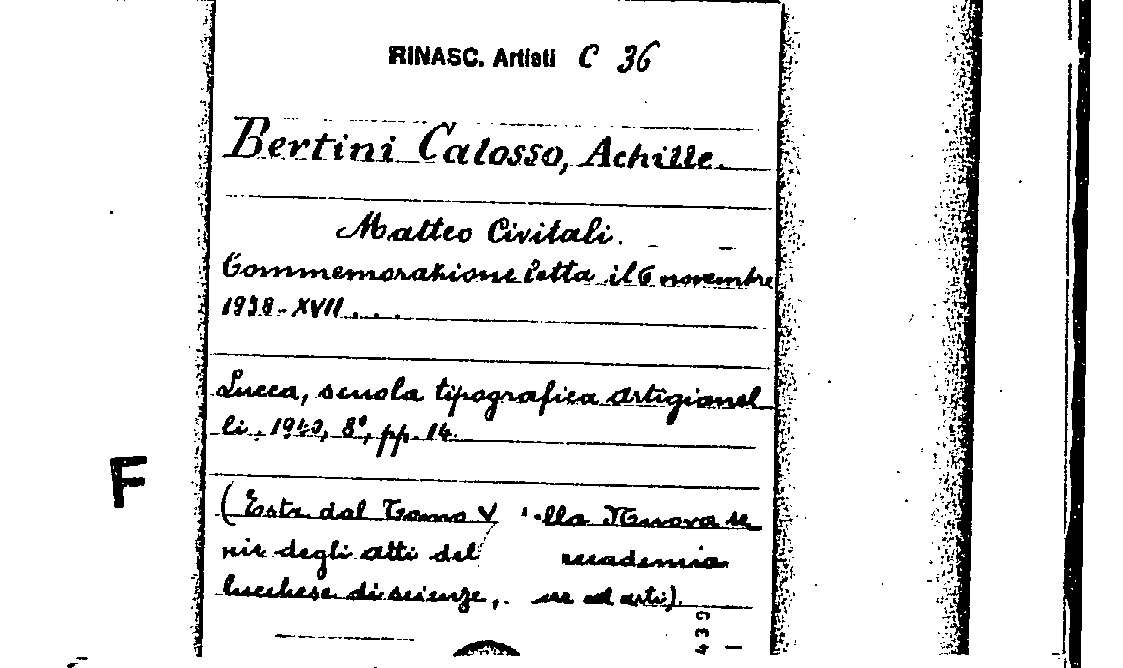 RINASC. Artisti C 36
Bertini Calosso, Achille.
Matteo Civitali.
Commemorazione letta il 6 novembre
1938-XVII...
Lucca, scuola tipografica artigianel-
li. 1940, 8°, pp. 14.
F
(Estr. dal Tomo V della Nuova se-
rie degli atti del accademia
lucchese di scienze, ed arti).
439